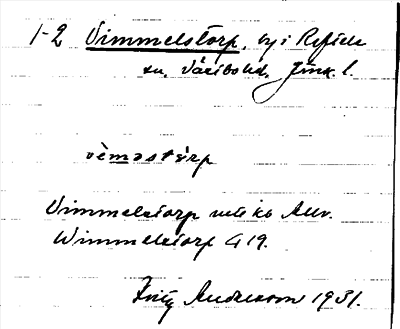 1-2 Vimmelstorp, by i Reftele
sn, Västbo hd, Jönk. l.
vèməstórp
Vimmelstorp uti kb Allv.
Wimmelstorp G 19.
Fritz Andersson 1931.